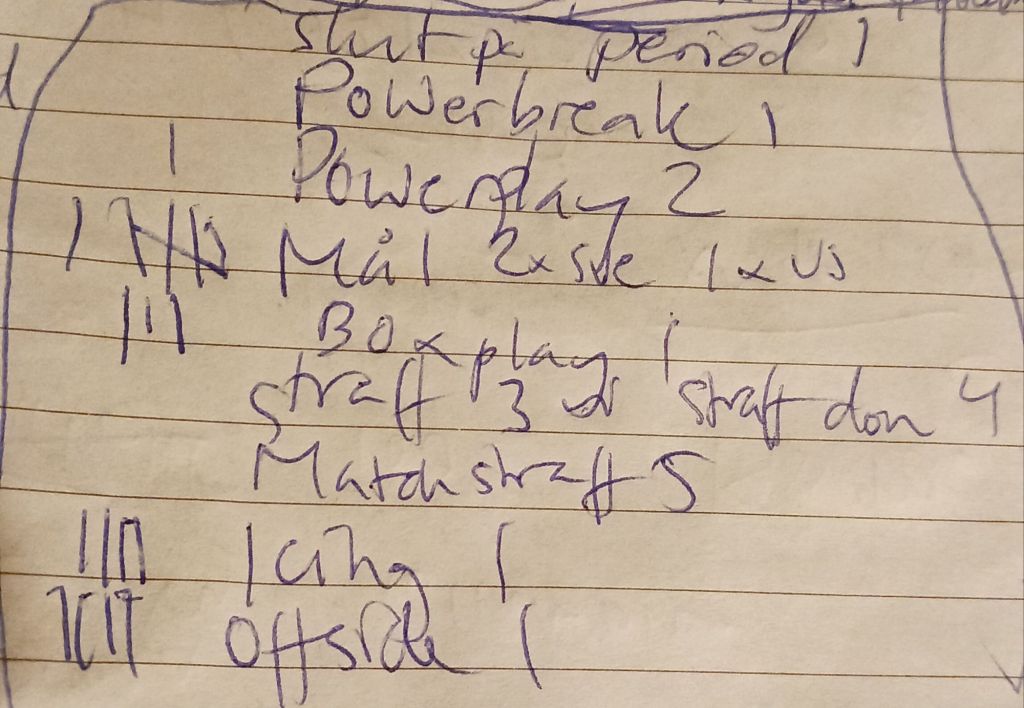 slut på period 1
Powerbreak 1
| Powerplay 2
| |||| Mål 2x sve 1x us
||| Boxplay 1
straff 3 straff dom 4
Matchstraff 5
|||| Icing 1
|||| Offside 1